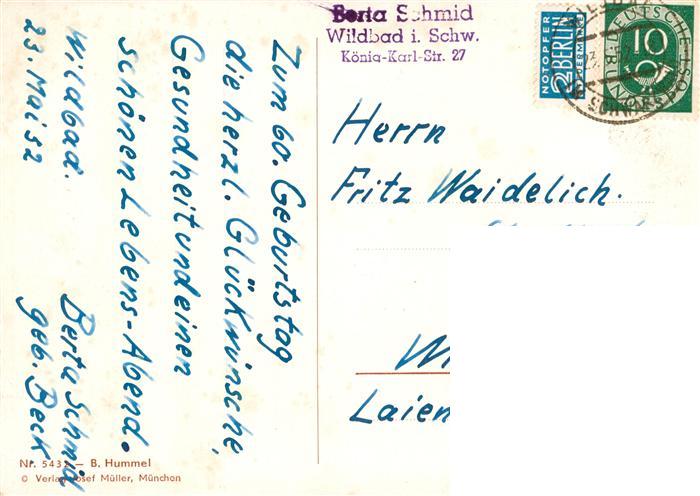 Zum 60. Geburtstag
die herzl. Glückwünsche,
Gesundheit und einen
schönen Lebens-Abend.
Wildbad.
23. Mai 52
Berta Schmid
geb. Beck
Nr. 5432 — B. Hummel
© Verlag Josef Müller, München
Berta Schmid
Wildbad i. Schw.
König-Karl-Str. 27
NOTOPFER
2 BERLIN
STEUERMARKE
DEUTSCHE
BUNDESPOST
10
Herrn
Fritz Waidelich.
Laien